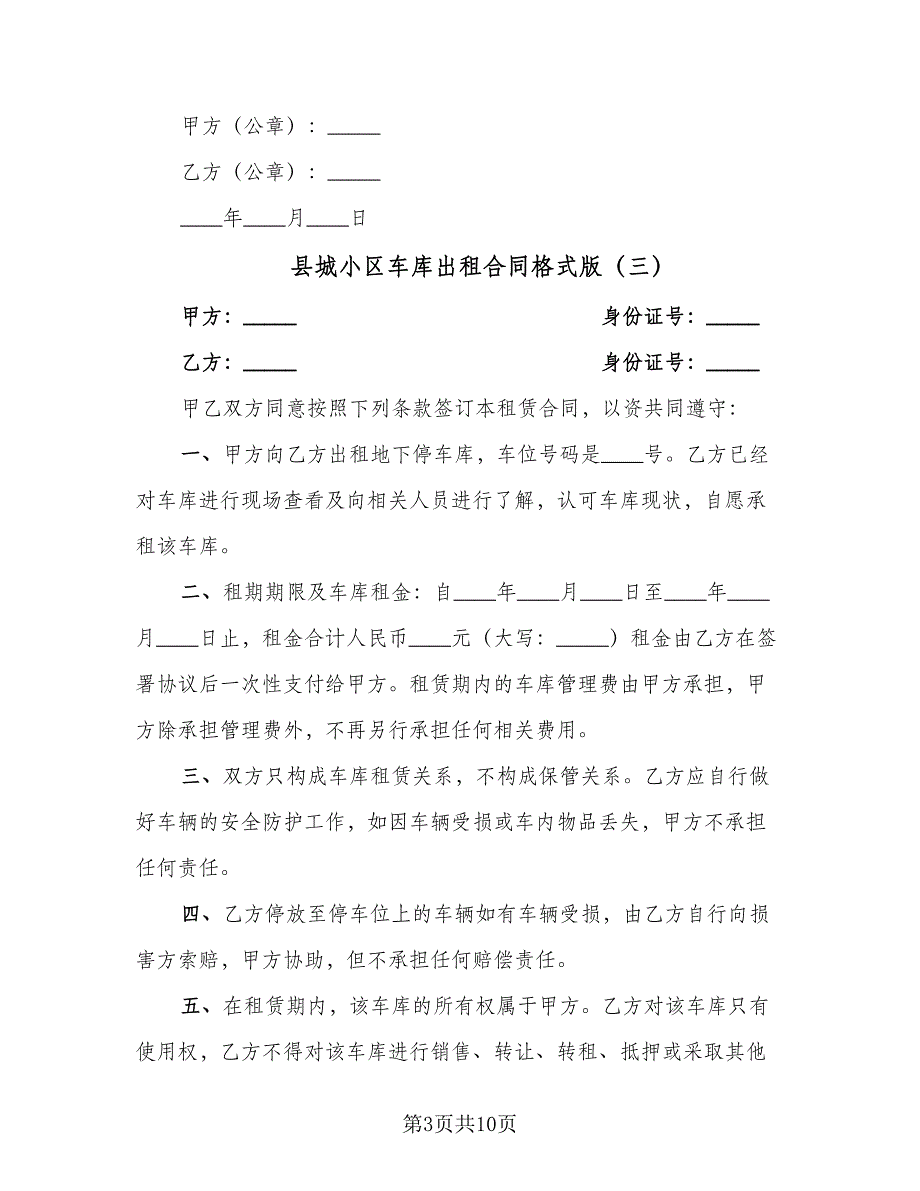 甲方（公章）：_____
乙方（公章）：_____
____年____月____日
县城小区车库出租合同格式版（三）
甲方：_____ 身份证号：_____
乙方：_____ 身份证号：_____
甲乙双方同意按照下列条款签订本租赁合同，以资共同遵守：
一、甲方向乙方出租地下停车库，车位号码是____号。乙方已经
对车库进行现场查看及向相关人员进行了解，认可车库现状，自愿承
租该车库。
二、租期期限及车库租金：自____年____月____日至____年____
月____日止，租金合计人民币____元（大写：_____）租金由乙方在签
署协议后一次性支付给甲方。租赁期内的车库管理费由甲方承担，甲
方除承担管理费外，不再另行承担任何相关费用。
三、双方只构成车库租赁关系，不构成保管关系。乙方应自行做
好车辆的安全防护工作，如因车辆受损或车内物品丢失，甲方不承担
任何责任。
四、乙方停放至停车位上的车辆如有车辆受损，由乙方自行向损
害方索赔，甲方协助，但不承担任何赔偿责任。
五、在租赁期内，该车库的所有权属于甲方。乙方对该车库只有
使用权，乙方不得对该车库进行销售、转让、转租、抵押或采取其他
第3页共10页